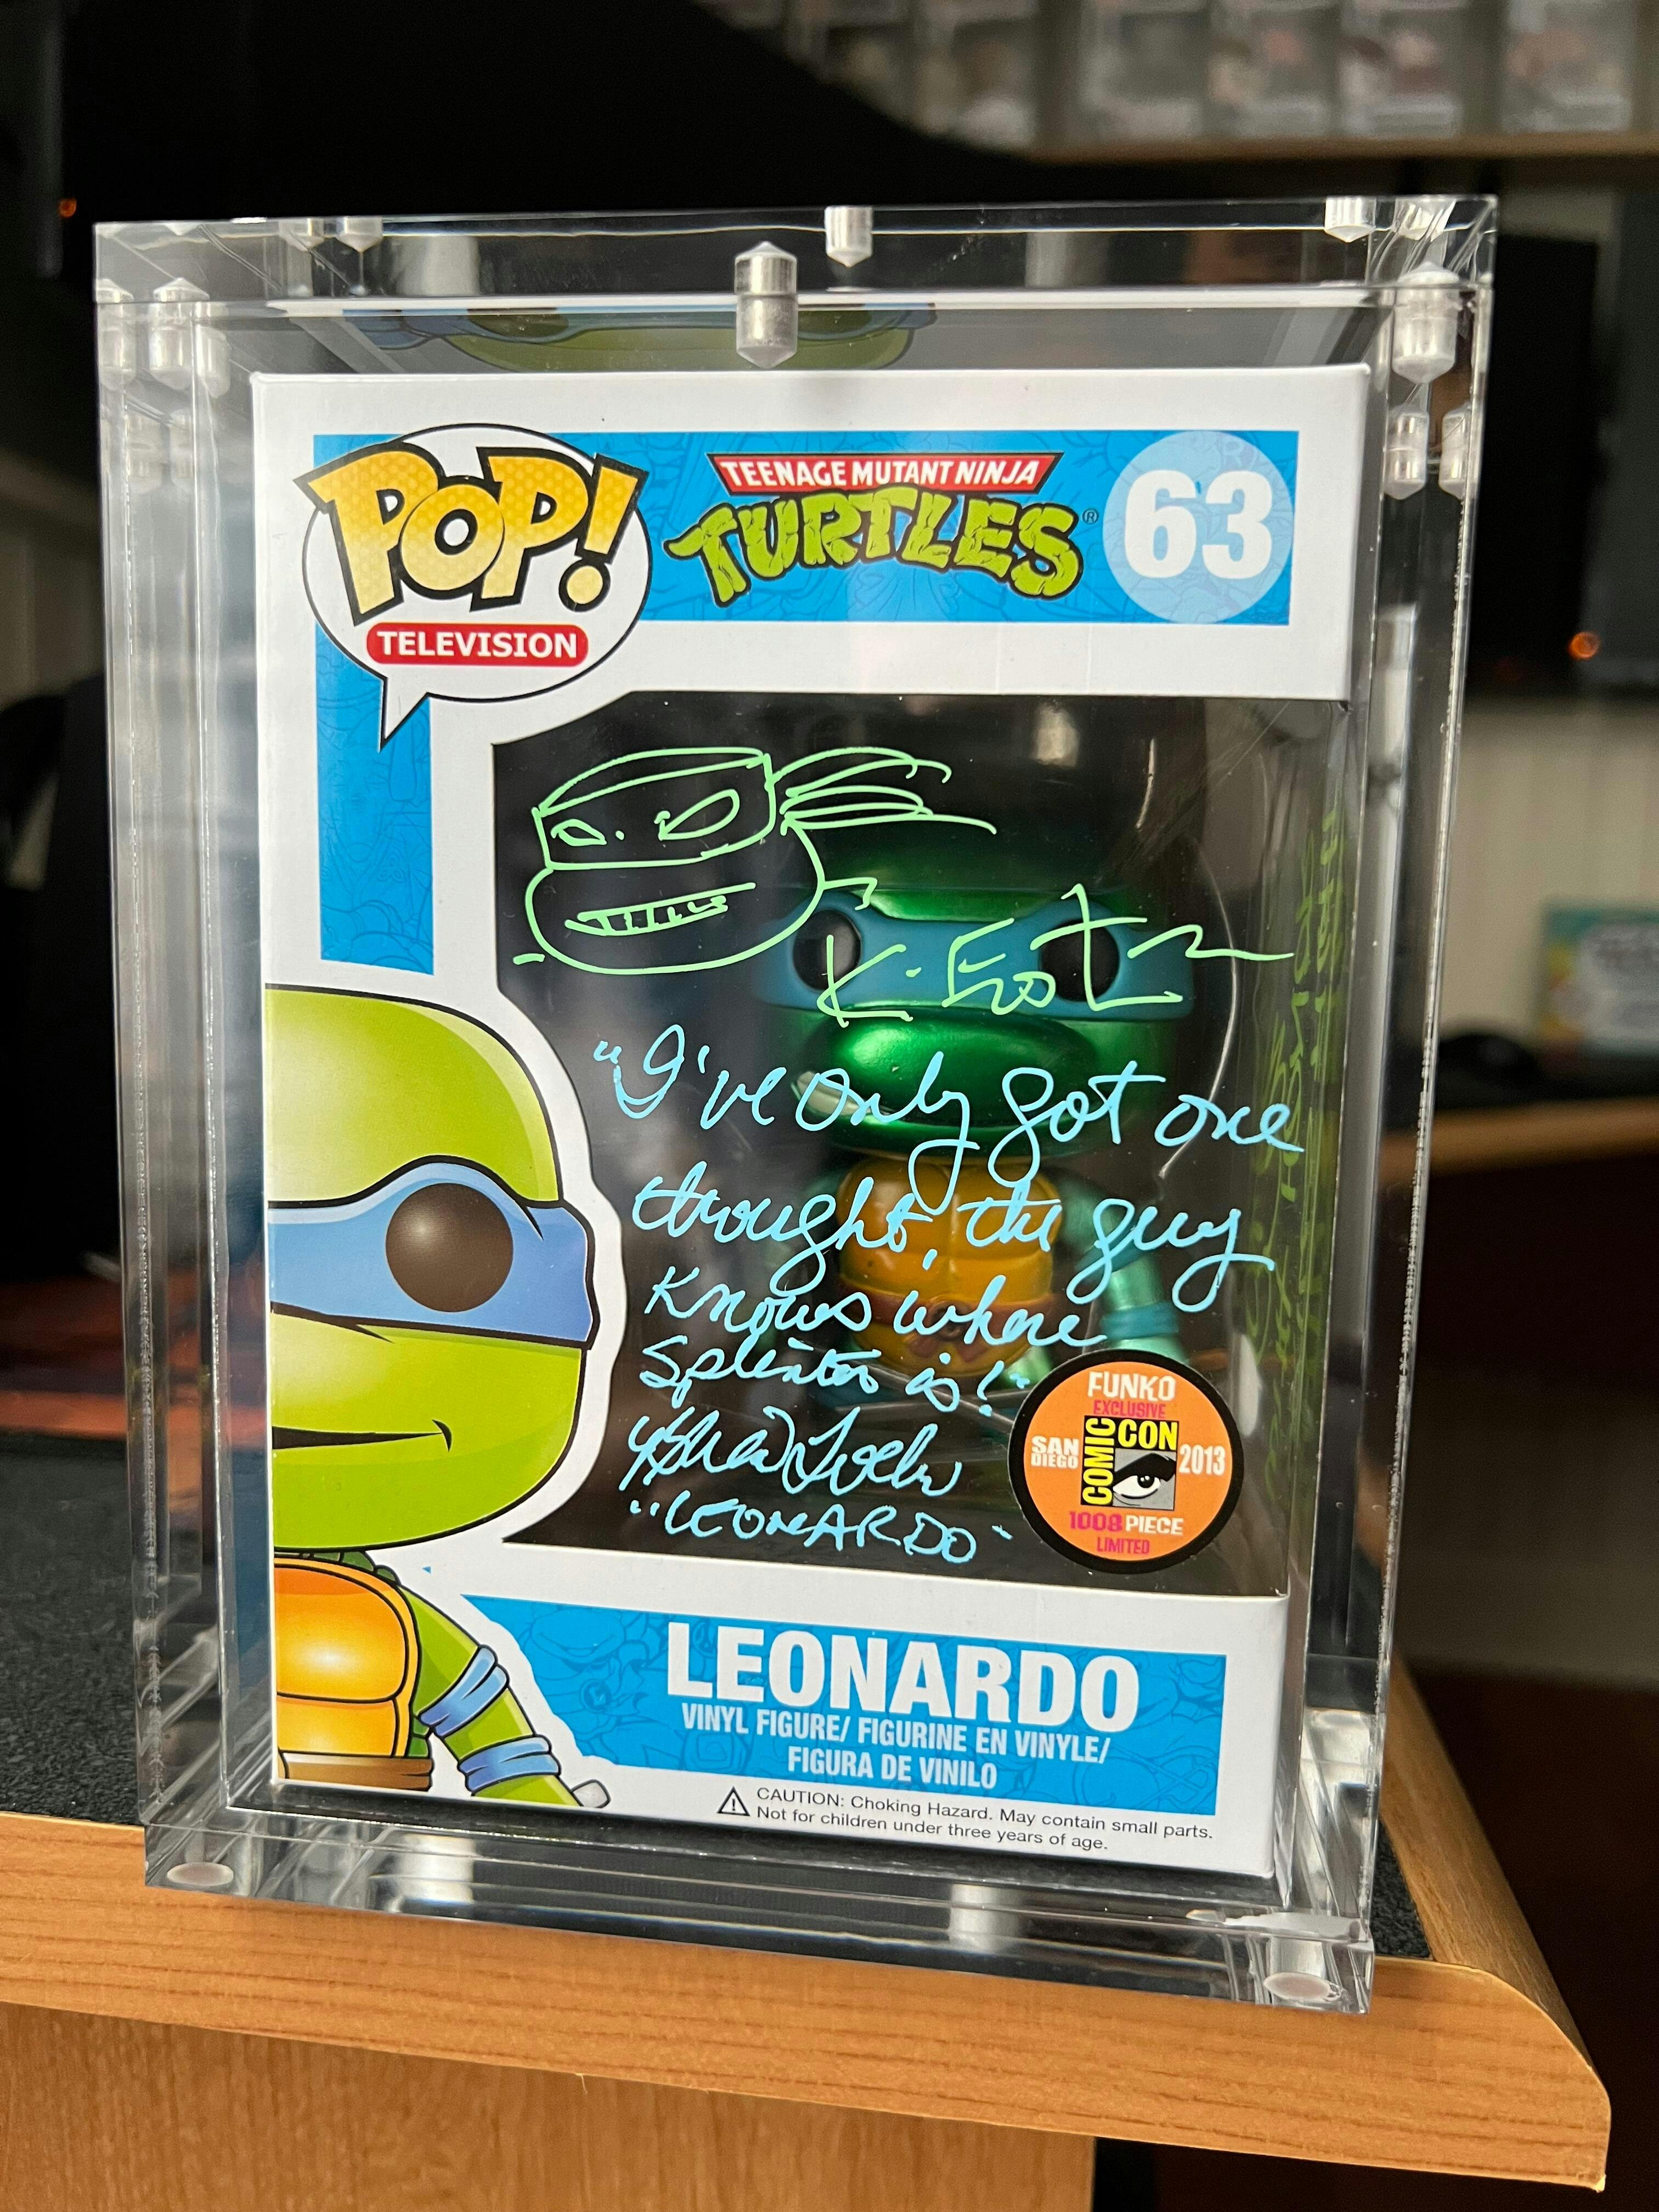 POP!
TELEVISION
TEENAGE MUTANT NINJA
TURTLES®
63
K. Eastman
"I've only got one
thought, the guy
knows where
Splinter is!"
"LEONARDO"
FUNKO
EXCLUSIVE
SAN DIEGO COMIC CON 2013
1008 PIECE
LIMITED
LEONARDO
VINYL FIGURE/ FIGURINE EN VINYLE/
FIGURA DE VINILO
CAUTION: Choking Hazard. May contain small parts.
Not for children under three years of age.